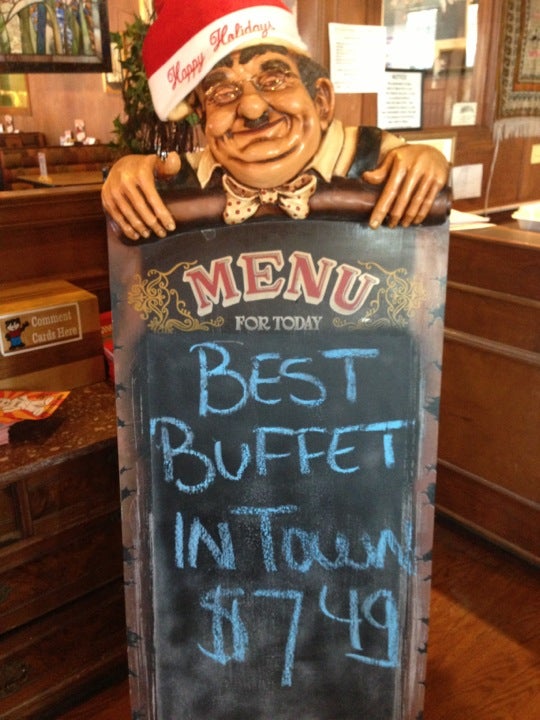 Happy Holidays
MENU
FOR TODAY
BEST
BUFFET
IN TOWN
$7 49
Comment
Cards Here
NOTICE